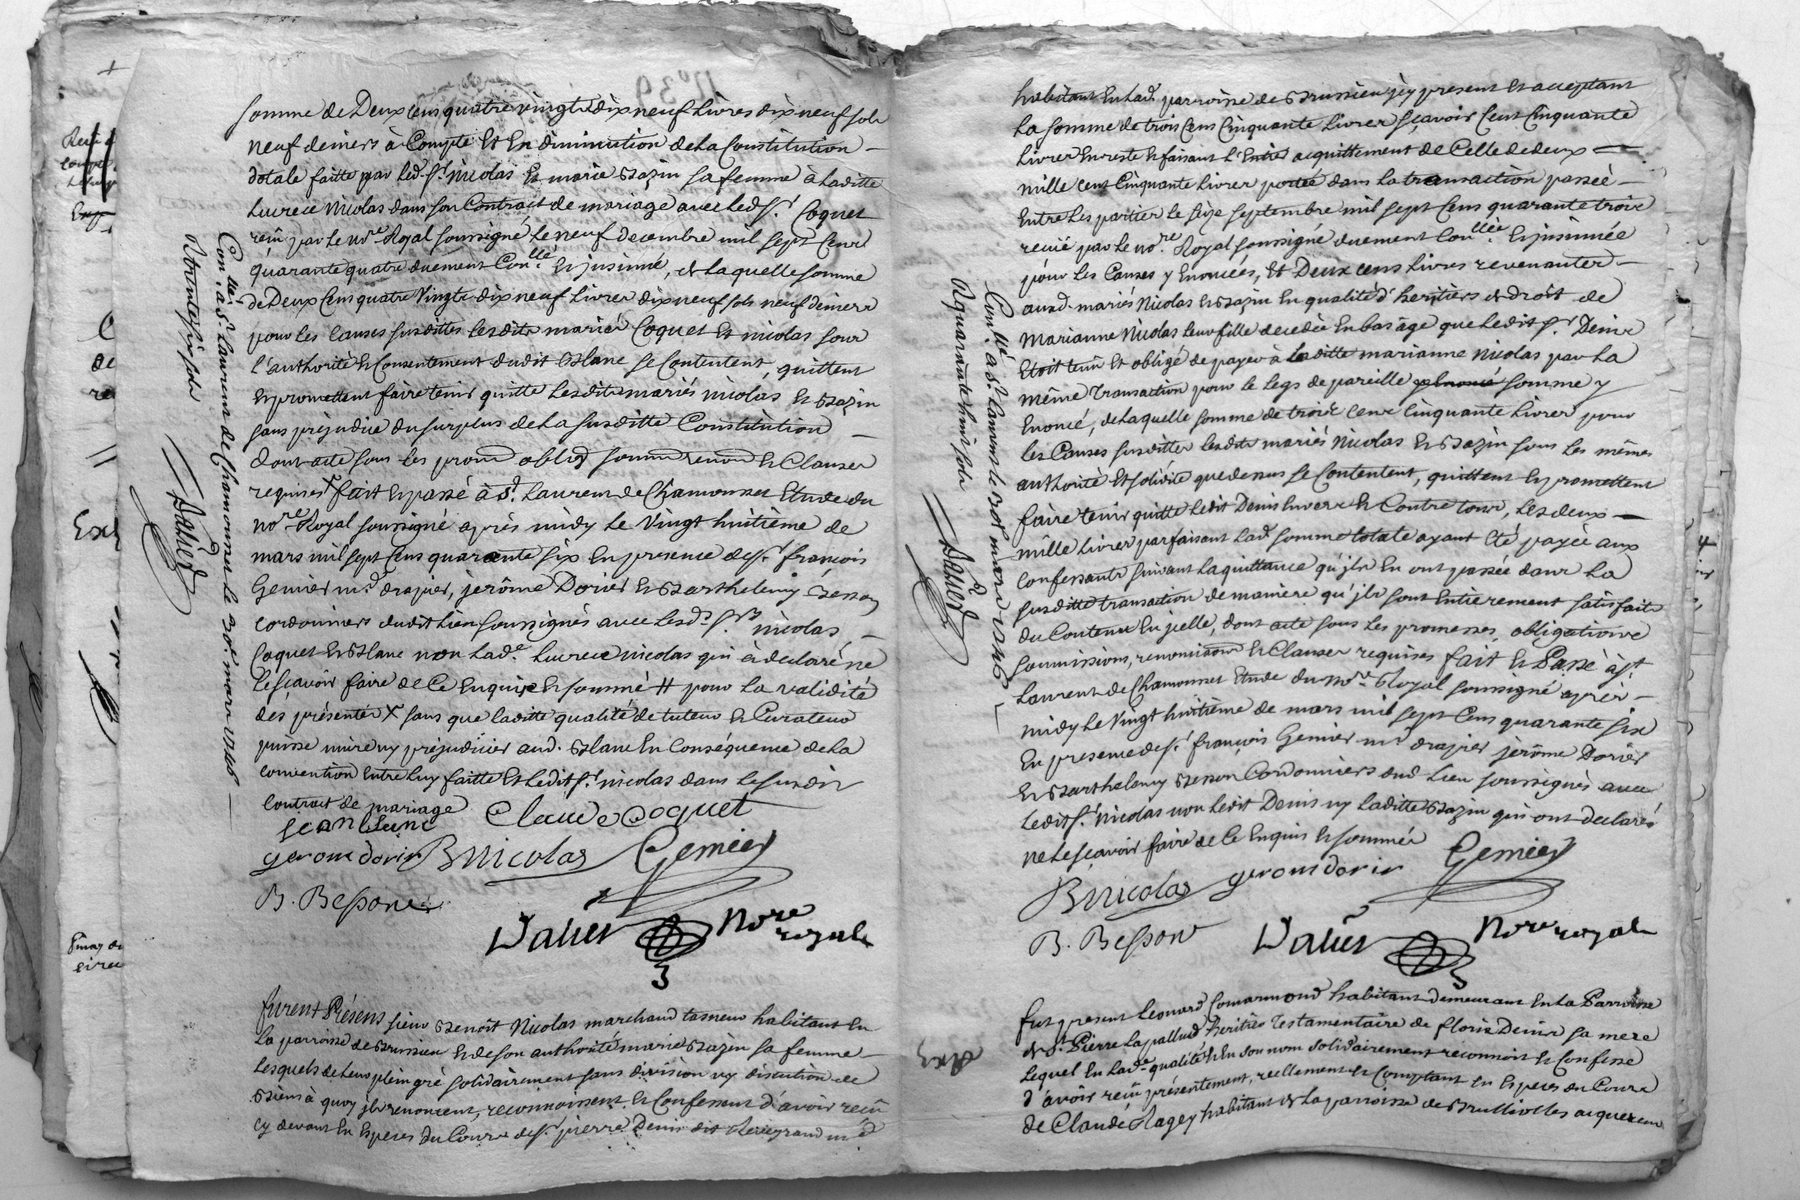 somme de Deux Cens quatre vingt dix neuf Livres dix neuf sols
neuf deniers à Compte Et En diminution de La Constitution
dotale faitte par Led. Sr. Nicolas Et marie Bazin sa femme à Laditte
Lucrece Nicolas dans son Contract de mariage avec Led. Sr. Coquet
reçu par Le nore. Royal soussigné Le neuf decembre mil sept Cens
quarante quatre duement Conllé. Et jnsinué, de Laquelle somme
de Deux Cens quatre Vingt dix neuf Livres dix neuf sols neuf deniers
pour les causes susdittes lesdits mariés Coquet Et nicolas sous
l'authorité Et Consentement dudit Blanc se Contentent, quittent
Et promettent faire tenir quitte Lesdits mariés nicolas Et Bazin
sans préjudice du surplus de La susditte Constitution
dont acte sous les prom. oblig. soum. renon. Et Clauses
requises x fait Et passé à St. Laurent de Chamousset Etude du
nore. Royal soussigné après midy Le Vingt huitième de
mars mil sept Cens quarante six En presence de Sr. françois
Gemier md. drapier, jerôme Dorier Et Barthelemy Besson
cordonniers dudit Lieu soussignés avec Lesd. Srs. nicolas,
Coquet Et Blanc non Lad. Lucrece nicolas qui a declaré ne
le sçavoir faire de Ce Enquise Et sommé # pour La validité
des présentes x sans que laditte qualité de tuteur Et Curateur
puisse nuire ny préjudicier aud. Blanc En Conséquence de La
convention Entre Luy faitte Et Ledit Sr. nicolas dans Le susdit
contract de mariage
jean blanc Claude Coquet
gerome dorier BNicolas Gemier
B. Besson
Dalier Nore royal
Conllé. à St. Laurent de Chamousset Le 30e. mars 1746
R trente six sols
Dalier
furent Présens sieur Benoît Nicolas marchand taneur habitant En
La parroisse de Brussieu Et de son authorité marie Bazin sa femme
Lesquels de Leur plein gré solidairement sans division ny distution de
Biens à quoy jls renoncent, reconnoissent Et Confessent d'avoir reçu
cy devant En Especes du Cours de Sr. pierre Denis dit
habitant En Lad. parroisse de Brussieu jcy present Et acceptant
La somme de trois Cens Cinquante Livres sçavoir Cent Cinquante
Livres En reste Et faisant L'Entier acquittement de Celle de deux
mille cent Cinquante Livres portée dans La transaction passée
Entre Les parties le seize septembre mil sept Cens quarante trois
recue par Le nore. Royal soussigné duement Conllée. Et jnsinuée
pour Les Causes y Enoncées, Et Deux cens Livres revenantes
aux d. mariés Nicolas Et Bazin En qualité d'heritiers de droit de
Marianne Nicolas leur fille decedée En bas âge que Ledit Sr. Denis
Etoit tenu Et obligé de payer à La ditte marianne Nicolas par La
même Transaction pour le legs de pareille somme y
Enoncé, de Laquelle somme de trois Cens Cinquante Livres pour
les Causes susdittes lesdits mariés Nicolas Et Bazin sous les mêmes
authorité Et solidité que dessus se Contentent, quittent Et promettent
faire tenir quitte Ledit Denis Envers Et Contre tous, Les deux
mille Livres parfaisant Lad. somme totale ayant Eté payée aux
Confessants suivant La quittance qu'jls En ont passée dans La
susditte transaction de manière qu'jls sont Entierement satisfaits
du Contenu En jcelle, dont acte sous Les promesses, obligations
soumissions, renonciations Et Clauses requises fait Et Passé à St.
Laurent de Chamousset Etude du nore. Royal soussigné après
midy Le Vingt huitième de mars mil sept Cens quarante six
En presence de Sr. françois Gemier md. drapier jerôme Dorier
Et Barthelemy Besson Cordonniers dud. Lieu soussignés avec
Ledit Sr. Nicolas non Ledit Denis ny Laditte Bazin qui ont declaré
ne Le sçavoir faire de Ce Enquis Et sommés
BNicolas gerome dorier Gemier
B. Besson Dalier Nore royal
Conllé. à St. Laurent le 30e. mars 1746
R quarante huit sols
Dalier
fut present Leonard Comarmond habitant demeurant En La Parroisse
de St. Pierre La pallud heritier Testamentaire de floris Denis sa mere
Lequel En Lad. qualité Et En son nom solidairement reconnoit Et Confesse
d'avoir reçu présentement, reellement Et Comptant En Especes du Cours
de Claude Ragey habitant de La parroisse de Brulliolles acquereur